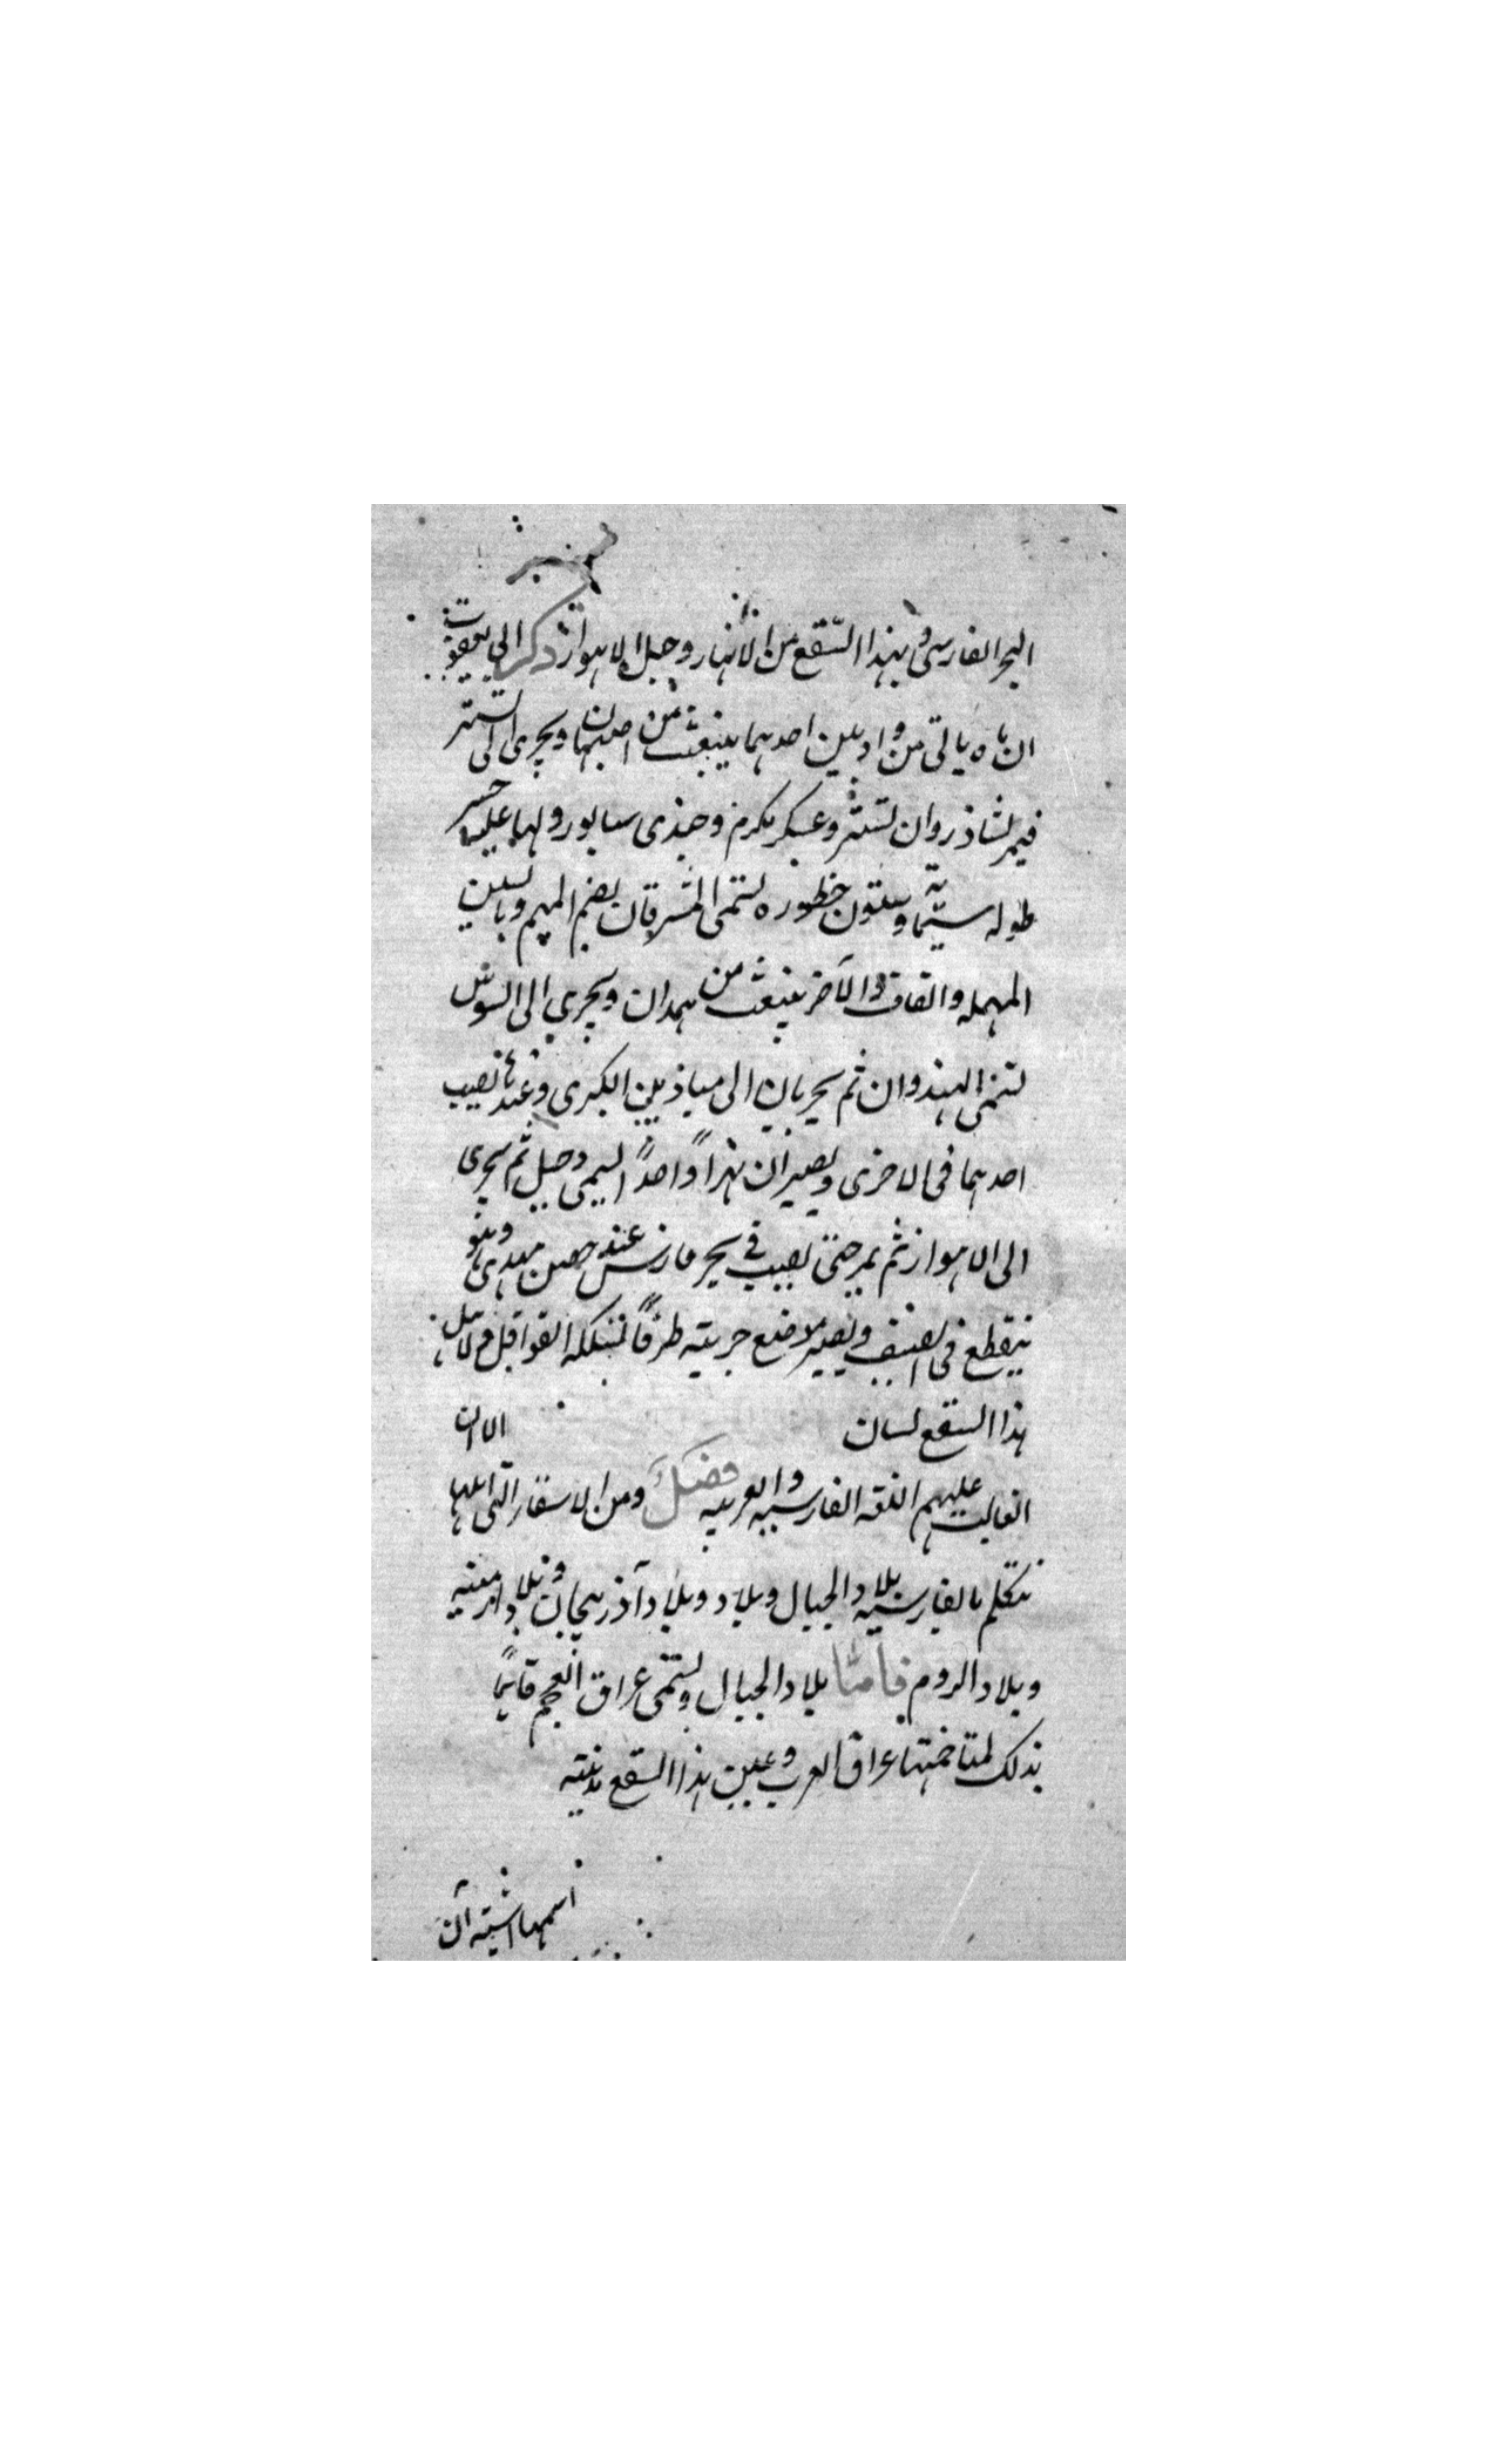 البحر الفارسى وبهذا السّقع من الانهار وجبل الاهواز ذكر ابن يعقوب
ان ماه ياتى من واديين احدهما ينبعث من اصبهان ويجرى الى تستر
فيمر بشاذروان تستر وعسكر مكرم وجندى سابور ولها عليه جسر
طوله ستمايّة وستون خطوره تسمى المشرقان بضم الميم وبالسين
المهمله والقاف والآخر ينبعث من همدان ويجرى الى السوس
تسمى الهندوان ثم يجريان الى مياذين الكبرى وعندها تصيب
احدهما فى الاخرى ويصيران نهراً واحداً يسمى دجيل ثم يجرى
الى الاهواز ثم يمر حتى يصيب فى بحر فارس عند حصن مهدى وهو
ينقطع فى الصيف ويصير موضع جريته طرقاً تسلكه القوافل ولاهل
هذا السقع لسان الا ان
الغالب عليهم اللغه الفارسيه والعربيه فصل ومن الاسقاع التى اهلها
تتكلم بالفارسيه بلاد الجبال وبلاد وبلاد آذربيجان وبلاد ارمنيه
وبلاد الروم فامّا بلاد الجبال وتسمى عراق العجم
بذلك لمتاخمتها عراق العرب وعين هذا السقع مدينته
اسمها